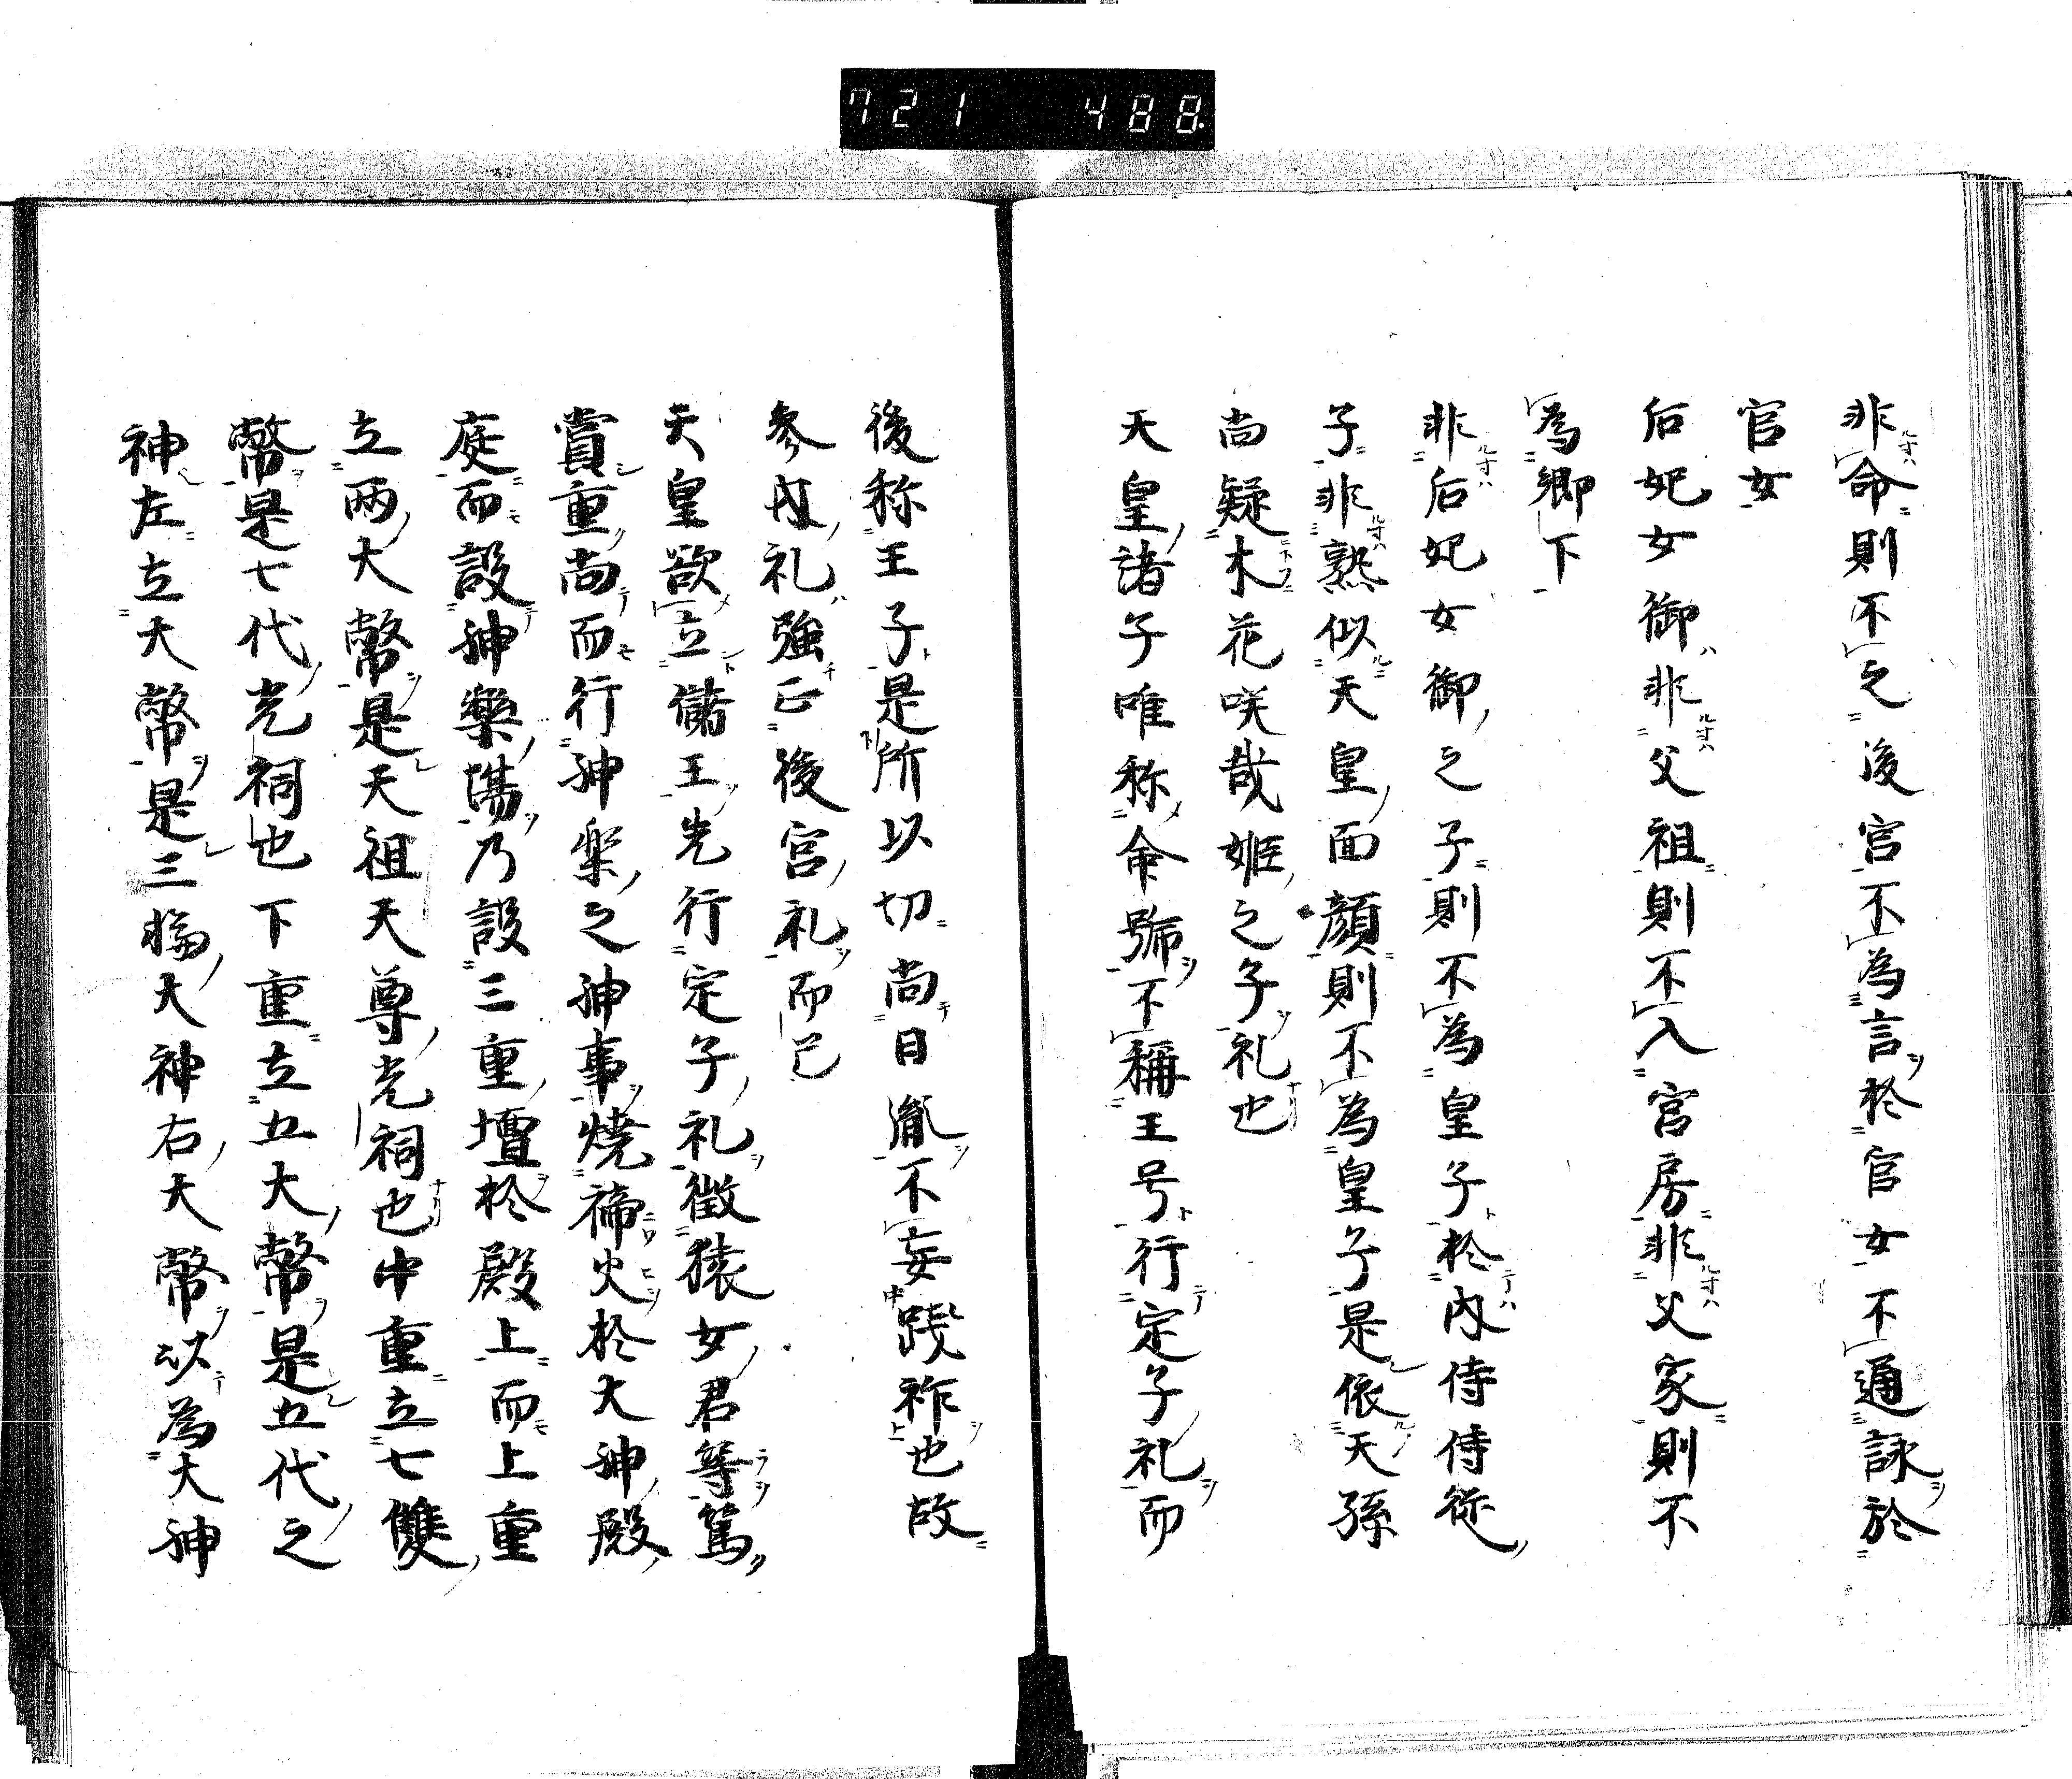 721 488
非命則不之後宮不為言於官女不通詠於
官女
后妃女御非父祖則不入宮房非父家則不
為卿下
非后妃女御之子則不為皇子於内侍侍従
子非熟似天皇面顔則不為皇子是依天孫
尚疑木花咲哉姫之子礼也
天皇諸子唯称命號不稱王号行定子礼而
後称王子是所以切尚日胤不妄踐祚也故
参内礼強正後宮礼而已
天皇欲立儲王先行定子礼徴猿女君等篤
賞重尚而行神楽之神事焼禘火於大神殿
庭而設神樂場乃設三重壇於殿上而上重
立两大幣是天祖天尊光祠也中重立七雙
幣是七代光祠也下重立五大幣是五代之
神左立大幣是三大神右大幣以為大神